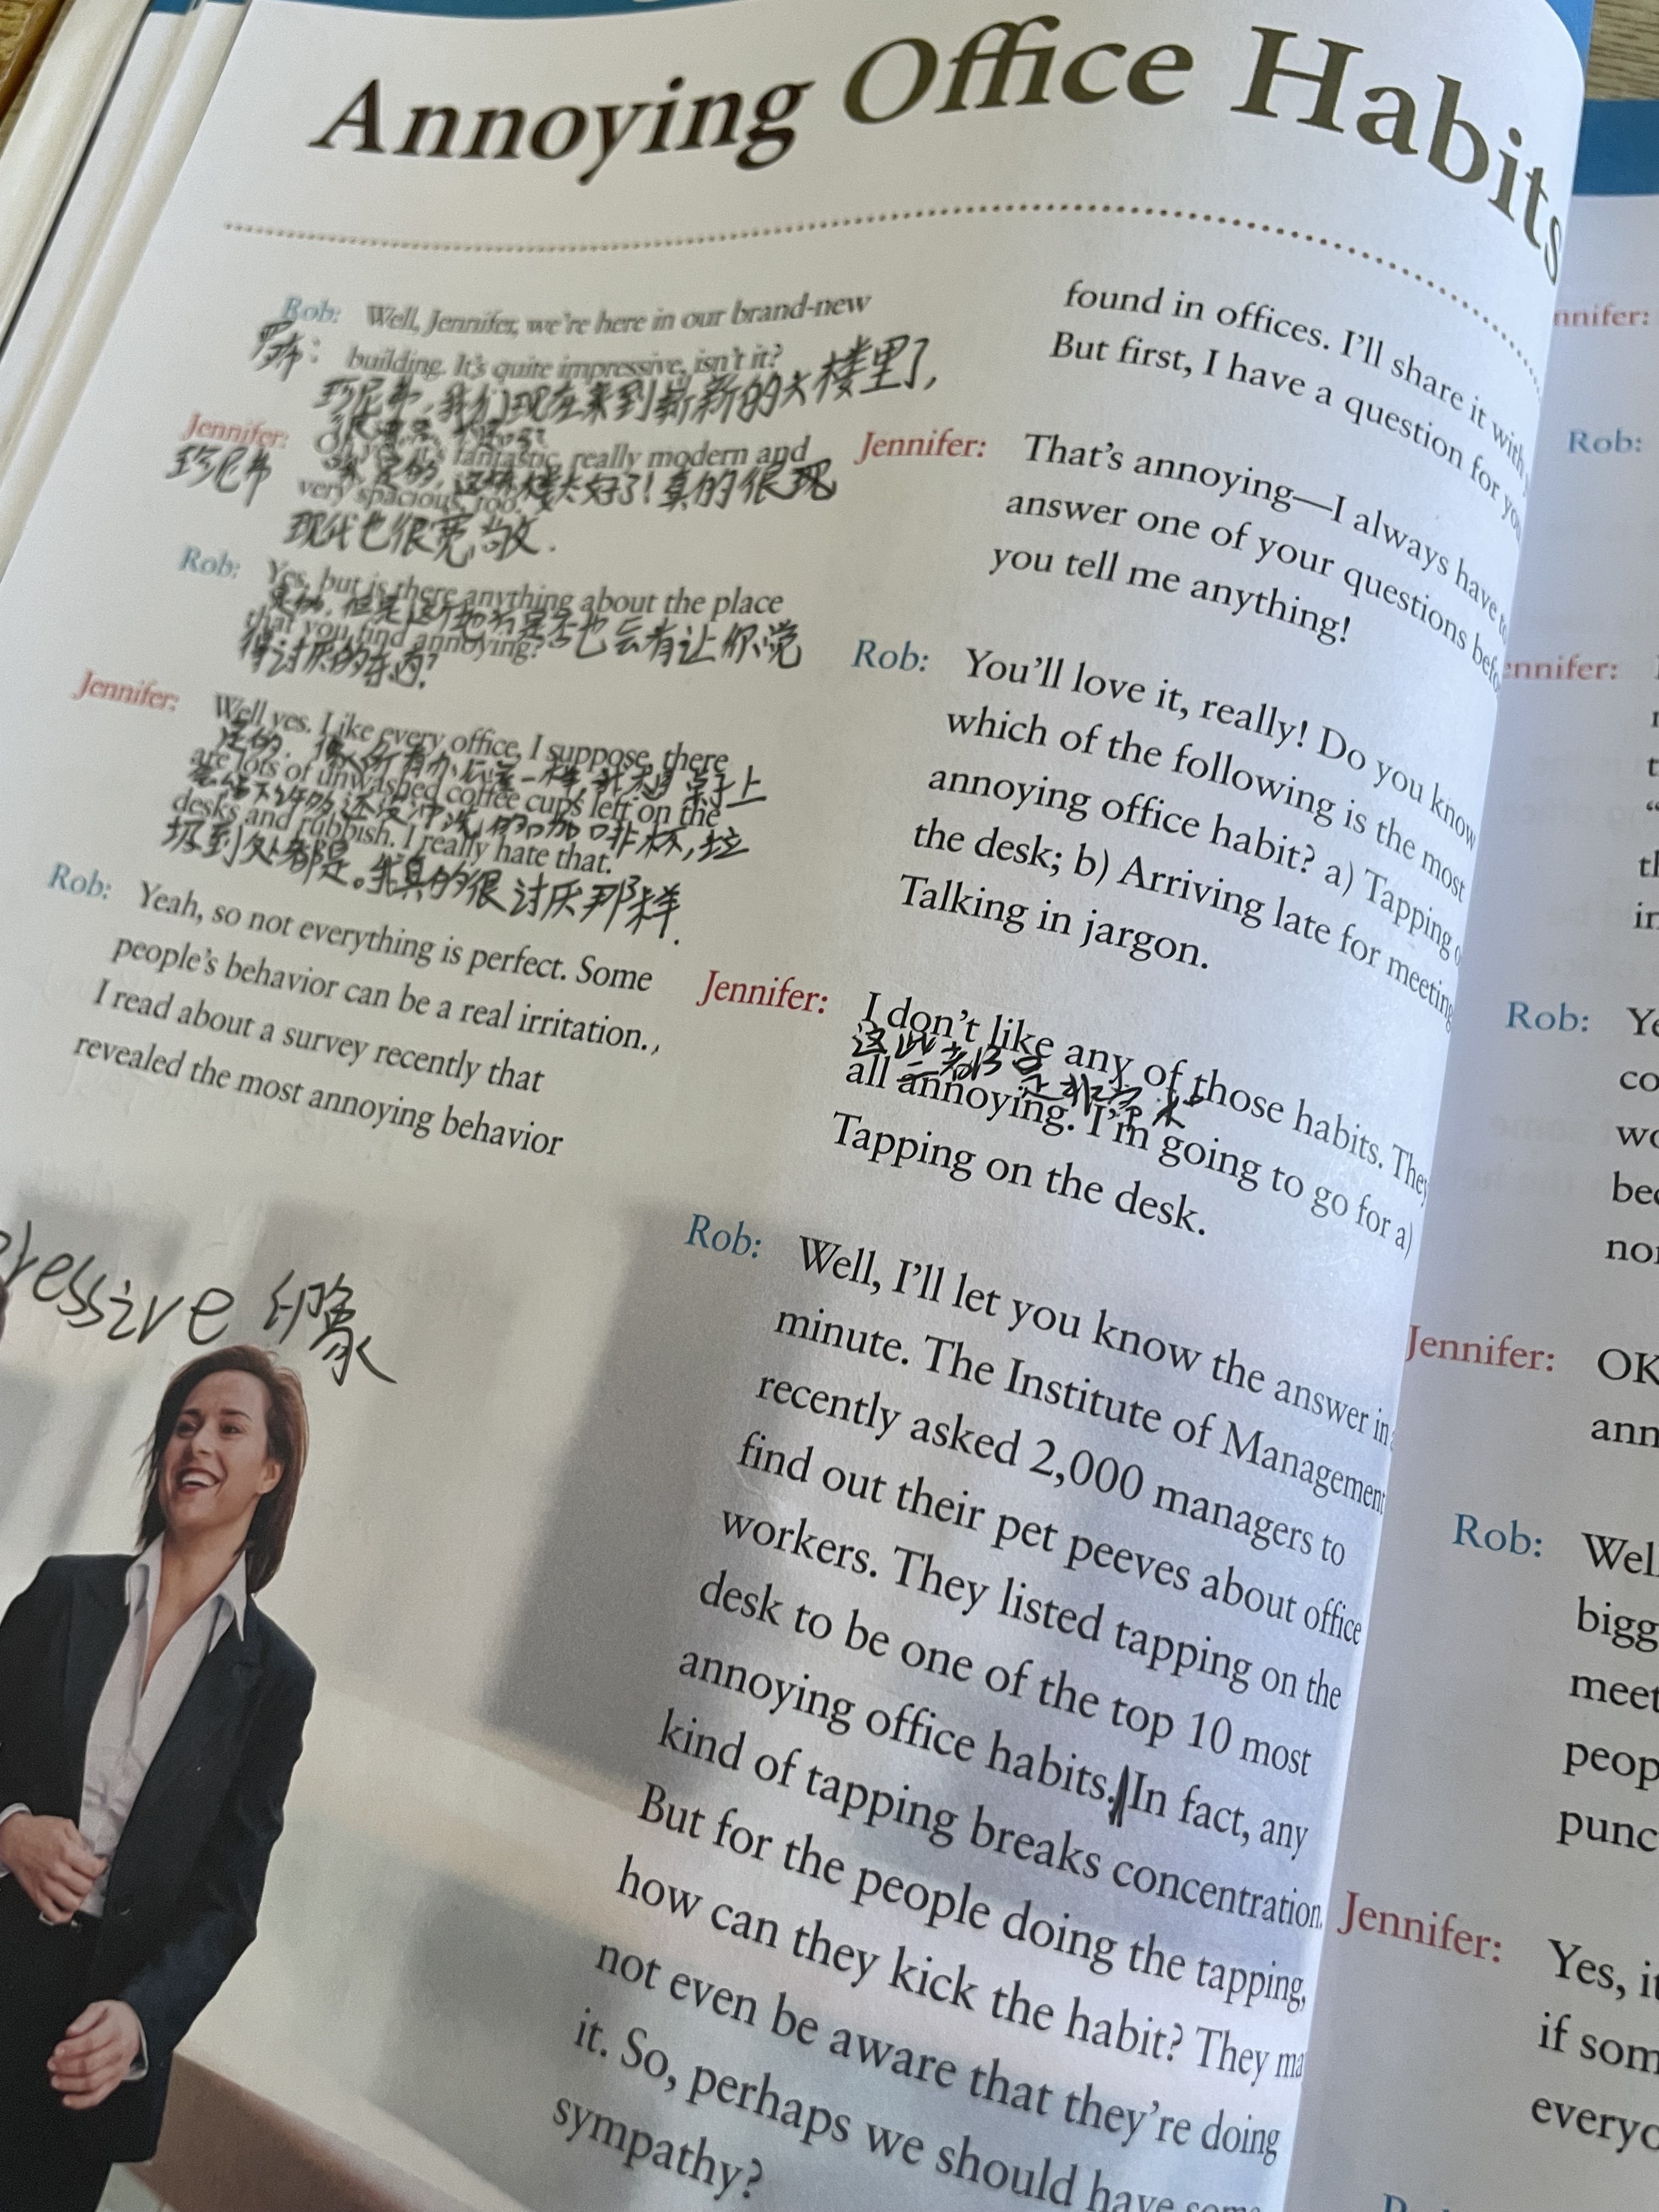 Annoying Office Habits
Rob: Well, Jennifer, we're here in our brand-new
building. It's quite impressive, isn't it?
珍尼弗,我们现在来到崭新的大楼里了,
Jennifer: it's fantastic, really modern and
珍尼弗 是的,这栋楼太好了!真的很现
very spacious, too.
现代也很宽敞.
Rob: Yes, but is there anything about the place
是的,但是这个地方是否也会有让你觉
that you find annoying?
得讨厌的东西?
Jennifer: Well yes. Like every office, I suppose, there
是的.像所有办公室一样,我想桌子上
are lots of unwashed coffee cups left on the
还没冲洗的咖啡杯,垃
desks and rubbish. I really hate that.
圾到处都是。我真的很讨厌那样.
Rob: Yeah, so not everything is perfect. Some
people's behavior can be a real irritation.
I read about a survey recently that
revealed the most annoying behavior
ressive 印象
found in offices. I'll share it with
But first, I have a question for you
Jennifer: That's annoying—I always have to
answer one of your questions before
you tell me anything!
Rob: You'll love it, really! Do you know
which of the following is the most
annoying office habit? a) Tapping
the desk; b) Arriving late for meeting
Talking in jargon.
Jennifer: I don't like any of those habits. They
这些都
all annoying. I'm going to go for a)
Tapping on the desk.
Rob: Well, I'll let you know the answer in
minute. The Institute of Management
recently asked 2,000 managers to
find out their pet peeves about office
workers. They listed tapping on the
desk to be one of the top 10 most
annoying office habits. In fact, any
kind of tapping breaks concentration.
But for the people doing the tapping,
how can they kick the habit? They
not even be aware that they're doing
it. So, perhaps we should have some
sympathy?
Jennifer:
Rob:
Jennifer:
in
Rob: Ye
co
wo
bec
nor
Jennifer: OK
ann
Rob: Wel
bigg
meet
peop
punc
Jennifer: Yes, it
if som
everyo